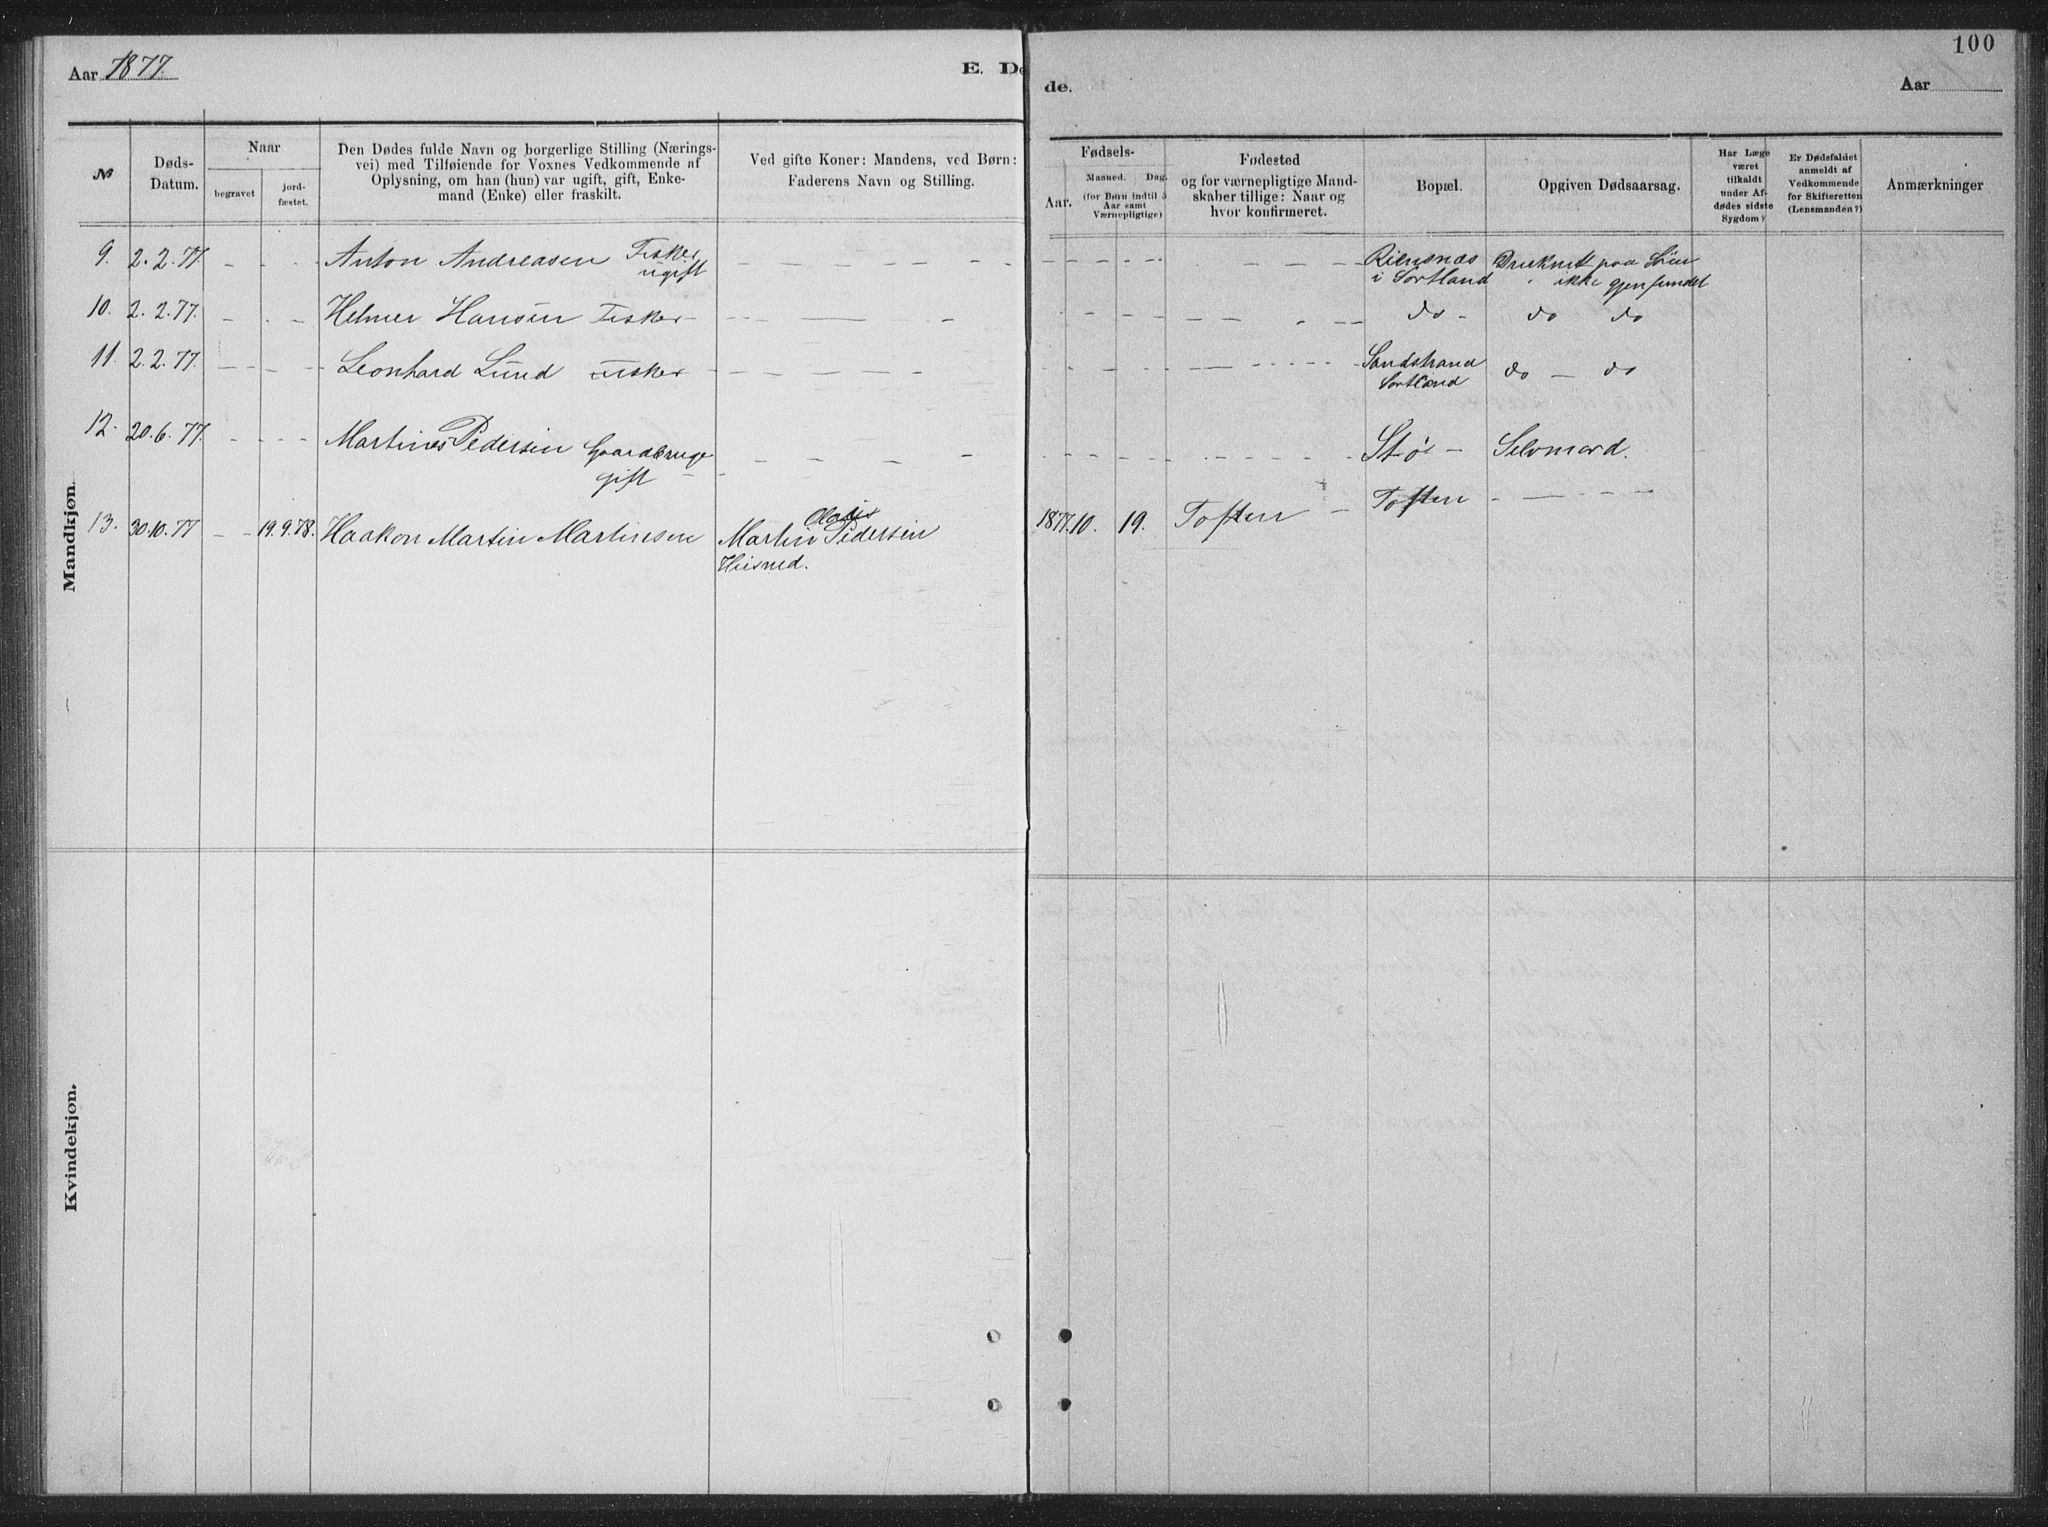 100
Aar 1877.
E. Dø
de.
Aar
№
Døds-
Datum.
Naar
begravet
jord-
fæstet.
Den Dødes fulde Navn og borgerlige Stilling (Nærings-
vei) med Tilføiende for Voxnes Vedkommende af
Oplysning, om han (hun) var ugift, gift, Enke-
mand (Enke) eller fraskilt.
Ved gifte Koner: Mandens, ved Børn:
Faderens Navn og Stilling.
Fødsels-
Aar.
Maaned. Dag.
(for Børn indtil 5
Aar samt
Værnepligtige)
Fødested
og for værnepligtige Mand-
skaber tillige: Naar og
hvor konfirmeret.
Bopæl.
Opgiven Dødsaarsag.
Har Læge
været
tilkaldt
under Af-
dødes sidste
Sygdom?
Er Dødsfaldet
anmeldt af
Vedkommende
for Skifteretten
(Lensmanden?)
Anmærkninger
Mandkjøn.
9. 2.2.77. - - - Anton Andreasen Fisker
ugift
Riensnæs
i Sortland
Druknet paa Søen
ikke gjenfundet
10. 2.2.77. - - - Helmer Hansen Fisker - do - do do
11. 2.2.77. - - - Leonhard Lund Fisker - Sandstrand
Sortland
do - do
12. 20.6.77. - - - Martines Pedersen Gaardbruge
gift
Stø - Selvmord.
13. 30.10.77 - - 19.9.78. Haakon Martin Martinsen
Olaus
Martin Pedersen
Huusmd.
1877. 10. 19. Toften - Toften - - - -
Kvindekjøn.